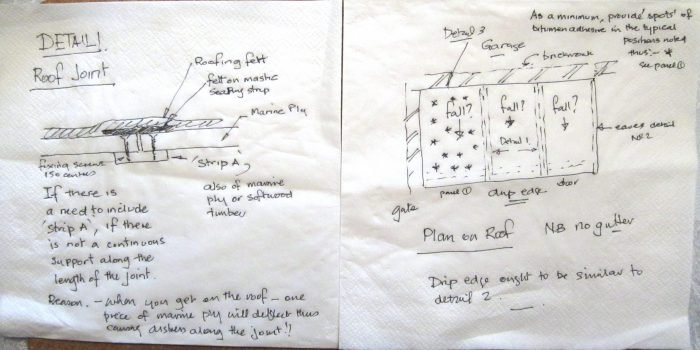 DETAIL 1
Roof Joint
Roofing felt
felt on mastic
sealing strip
Marine Ply
fixing screws
150 centres
'Strip A'
also of marine
ply or softwood
timber
If there is
a need to include
'strip A', if there
is not a continuous
support along the
length of the joint.
Reason. - When you get on the roof - one
piece of marine ply will deflect thus
causing along the joint!!
As a minimum, provide 'spots' of
bitumen adhesive in the typical
positions noted
thus:- *
see panel ①
Detail 3
Garage
brickwork
fall?
fall?
fall?
Detail 1
eaves detail
No 2
gate
panel ①
drip edge
door
Plan on Roof
NB no gutter
Drip edge ought to be similar to
detail 2.